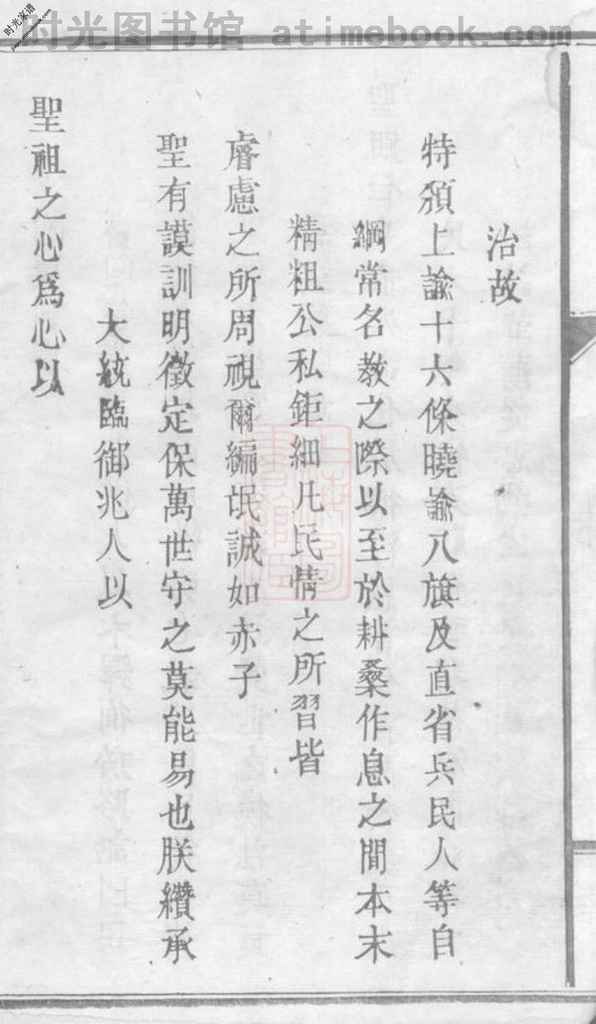 时光图书馆 atimebook.com
治故
特頒上諭十六條曉諭八旗及直省兵民人等自
綱常名教之際以至於耕桑作息之間本末
精粗公私鉅細凡民情之所習皆
睿慮之所周視爾編氓誠如赤子
聖有謨訓明徵定保萬世守之莫能易也朕纘承
大統臨御兆人以
聖祖之心爲心以